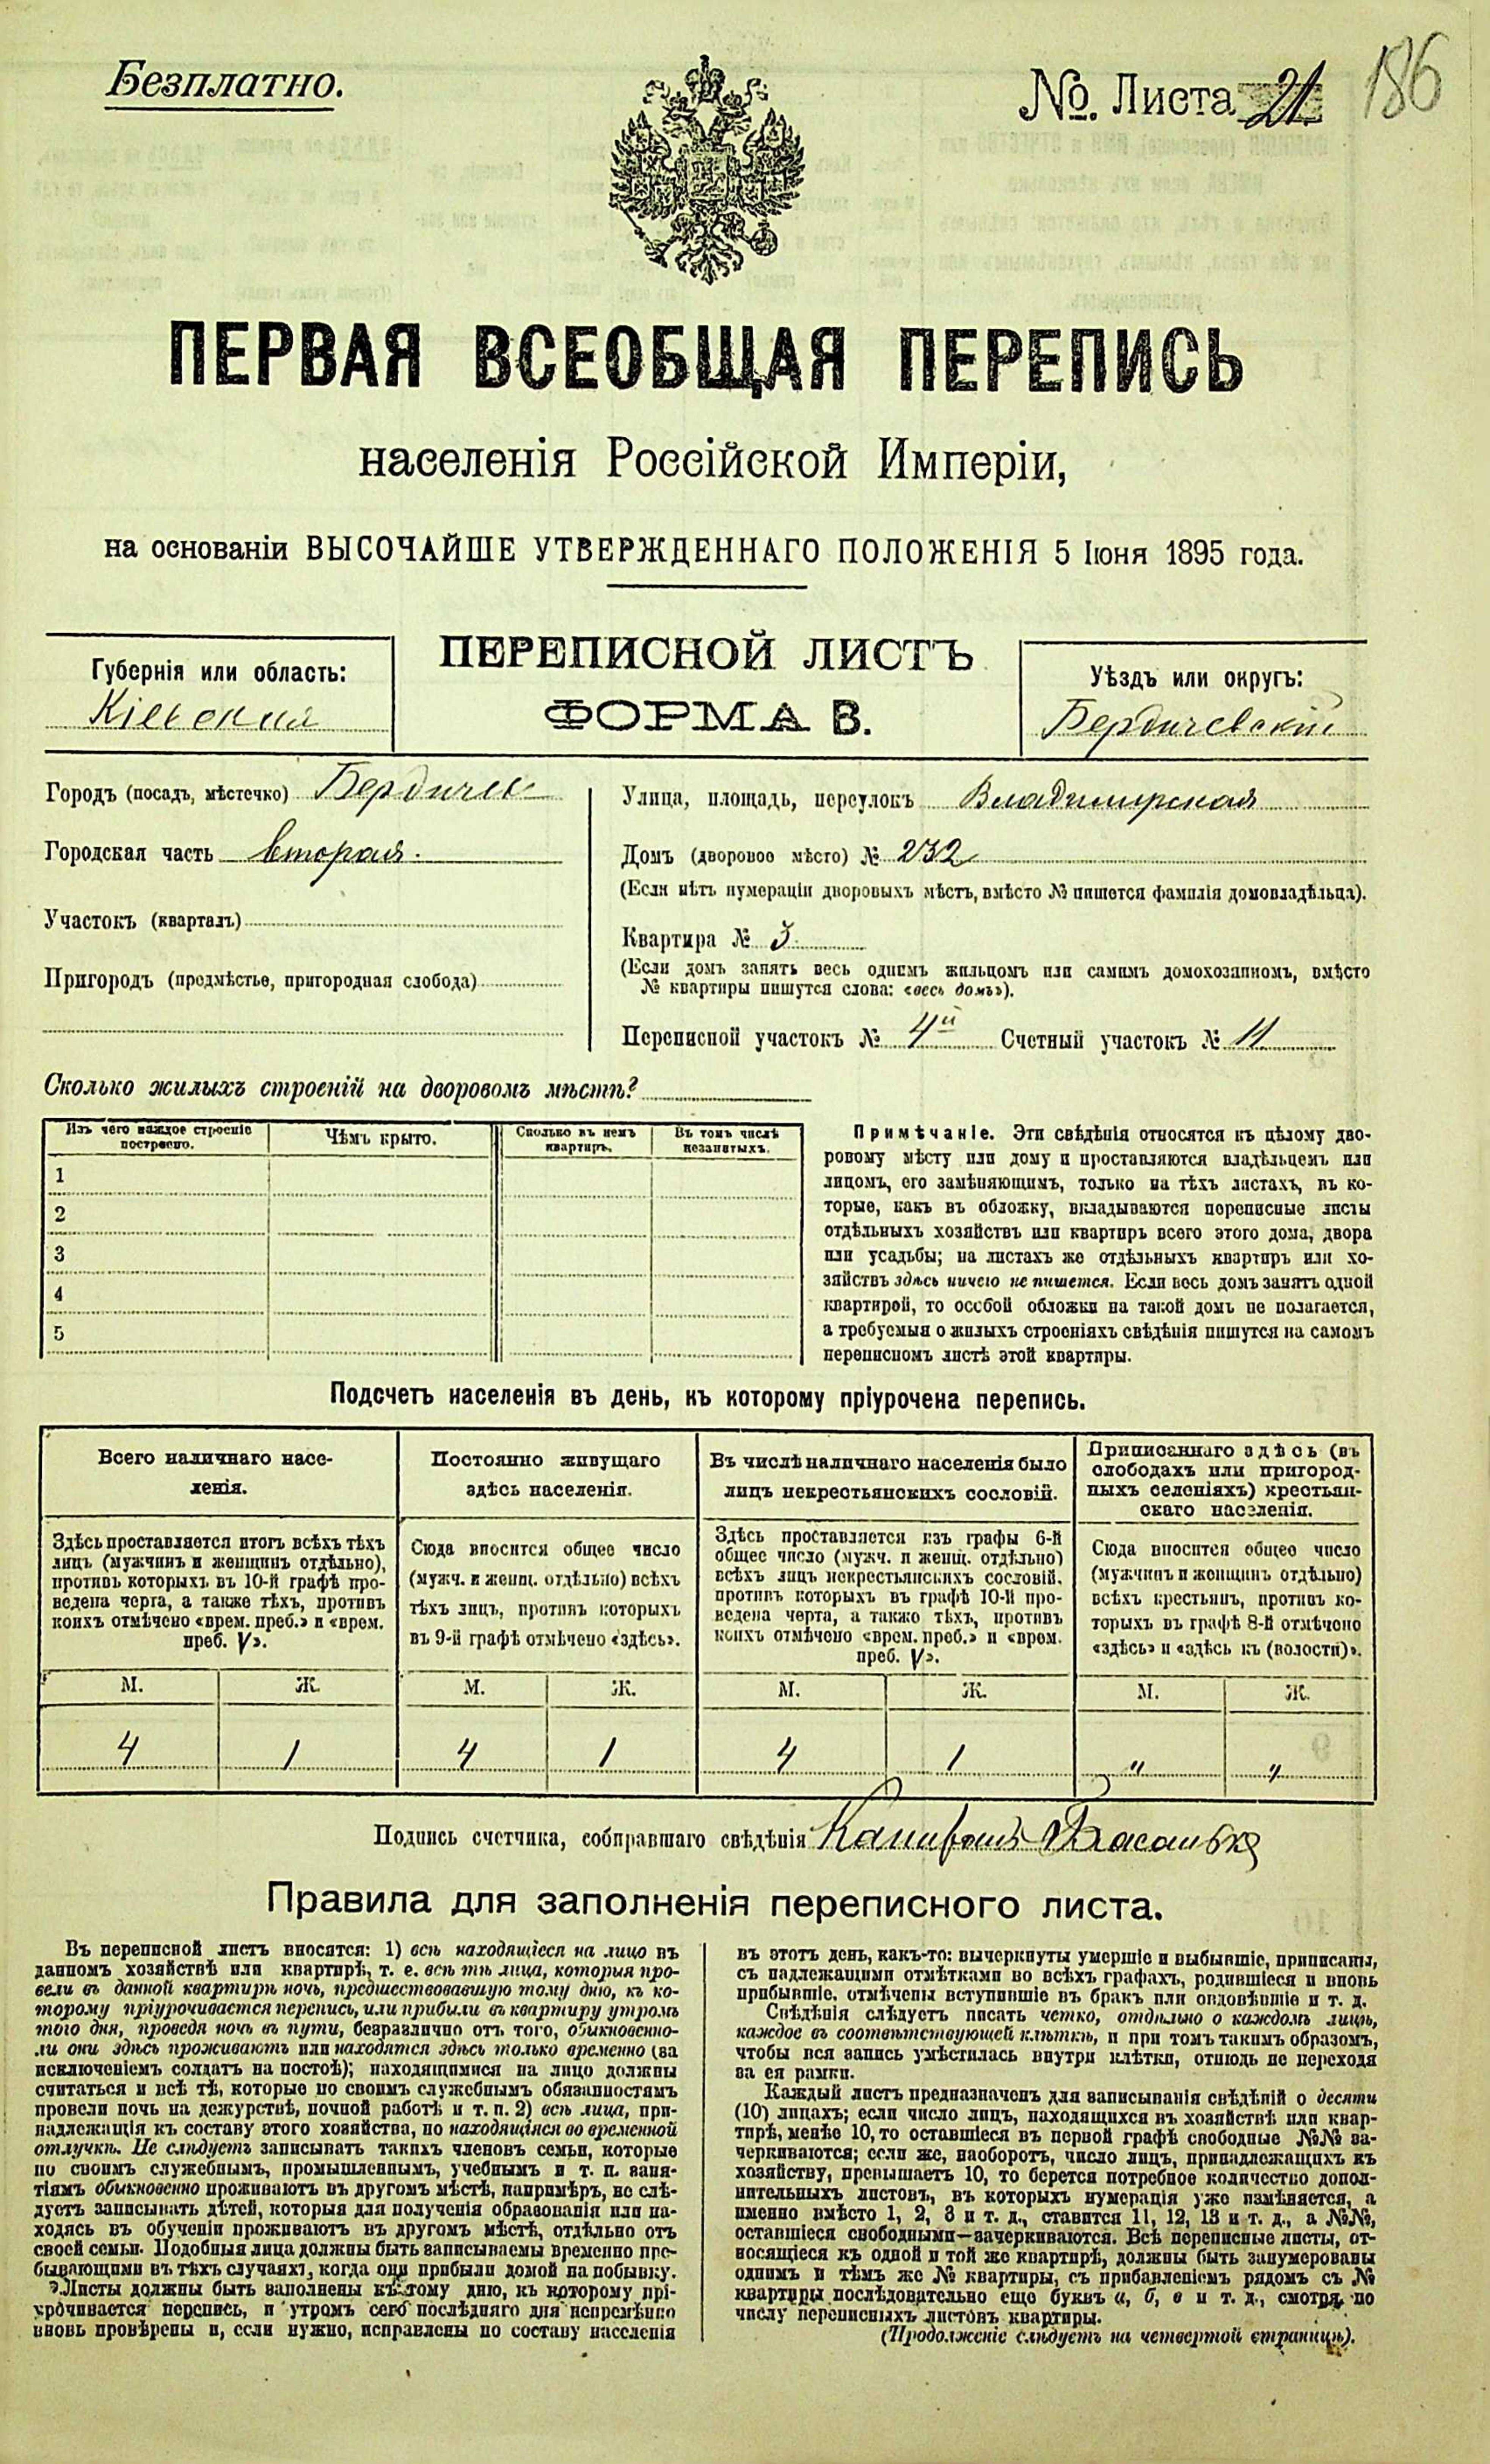 Безплатно.
№. Листа 21.
186
ПЕРВАЯ ВСЕОБЩАЯ ПЕРЕПИСЬ
населенія Россійской Имперіи,
на основаніи ВЫСОЧАЙШЕ УТВЕРЖДЕННАГО ПОЛОЖЕНІЯ 5 Іюня 1895 года.
ПЕРЕПИСНОЙ ЛИСТЪ
ФОРМА В.
Губернія или область:
Кіевская
Уѣздъ или округъ:
Бердичевскій
Городъ (посадъ, мѣстечко) Бердичевъ
Городская часть вторая.
Участокъ (кварталъ)
Пригородъ (предмѣстье, пригородная слобода)
Улица, площадь, переулокъ Владимирская
Домъ (дворовое мѣсто) № 232
(Если нѣтъ нумераціи дворовыхъ мѣстъ, вмѣсто № пишется фамилія домовладѣльца).
Квартира № 3
(Если домъ занятъ весь однимъ жильцомъ или самимъ домохозяиномъ, вмѣсто
№ квартиры пишутся слова: «весь домъ»).
Переписной участокъ № 4й Счетный участокъ № 11
Сколько жилыхъ строеній на дворовомъ мѣстѣ?
Изъ чего каждое строеніе
построено.
Чѣмъ крыто.
Сколько въ немъ
квартиръ.
Въ томъ числѣ
незанятыхъ.
1
2
3
4
5
Примѣчаніе. Эти свѣдѣнія относятся къ цѣлому дво-
ровому мѣсту или дому и проставляются владѣльцемъ или
лицомъ, его замѣняющимъ, только на тѣхъ листахъ, въ ко-
торые, какъ въ обложку, вкладываются переписные листы
отдѣльныхъ хозяйствъ или квартиръ всего этого дома, двора
или усадьбы; на листахъ же отдѣльныхъ квартиръ или хо-
зяйствъ здѣсь ничего не пишется. Если весь домъ занятъ одной
квартирой, то особой обложки на такой домъ не полагается,
а требуемыя о жилыхъ строеніяхъ свѣдѣнія пишутся на самомъ
переписномъ листѣ этой квартиры.
Подсчетъ населенія въ день, къ которому пріурочена перепись.
Всего наличнаго насе-
ленія.
Постоянно живущаго
здѣсь населенія.
Въ числѣ наличнаго населенія было
лицъ некрестьянскихъ сословій.
Приписаннаго здѣсь (въ
слободахъ или пригород-
ныхъ селеніяхъ) крестьян-
скаго населенія.
Здѣсь проставляется итогъ всѣхъ тѣхъ
лицъ (мужчинъ и женщинъ отдѣльно),
противъ которыхъ въ 10-й графѣ про-
ведена черта, а также тѣхъ, противъ
коихъ отмѣчено «врем. преб.» и «врем.
преб. V».
Сюда вносится общее число
(мужч. и женщ. отдѣльно) всѣхъ
тѣхъ лицъ, противъ которыхъ
въ 9-й графѣ отмѣчено «здѣсь».
Здѣсь проставляется изъ графы 6-й
общее число (мужч. и женщ. отдѣльно)
всѣхъ лицъ некрестьянскихъ сословій,
противъ которыхъ въ графѣ 10-й про-
ведена черта, а также тѣхъ, противъ
коихъ отмѣчено «врем. преб.» и «врем.
преб. V».
Сюда вносится общее число
(мужчинъ и женщинъ отдѣльно)
всѣхъ крестьянъ, противъ ко-
торыхъ въ графѣ 8-й отмѣчено
«здѣсь» и «здѣсь къ (волости)».
М. Ж. М. Ж. М. Ж. М. Ж.
4 1 4 1 4 1 " "
Подпись счетчика, собиравшаго свѣдѣнія
Правила для заполненія переписного листа.
Въ переписной листъ вносятся: 1) всѣ находящіеся на лицо въ
данномъ хозяйствѣ или квартирѣ, т. е. всѣ тѣ лица, которыя про-
вели въ данной квартирѣ ночь, предшествовавшую тому дню, къ ко-
торому пріурочивается перепись, или прибыли въ квартиру утромъ
того дня, проведя ночь въ пути, безразлично отъ того, обыкновенно-
ли они здѣсь проживаютъ или находятся здѣсь только временно (за
исключеніемъ солдатъ на постоѣ); находящимися на лицо должны
считаться и всѣ тѣ, которые по своимъ служебнымъ обязанностямъ
провели ночь на дежурствѣ, ночной работѣ и т. п. 2) всѣ лица, при-
надлежащія къ составу этого хозяйства, но находящіяся во временной
отлучкѣ. Не слѣдуетъ записывать такихъ членовъ семьи, которые
по своимъ служебнымъ, промышленнымъ, учебнымъ и т. п. заня-
тіямъ обыкновенно проживаютъ въ другомъ мѣстѣ, напримѣръ, не слѣ-
дуетъ записывать дѣтей, которыя для полученія образованія или на-
ходясь въ обученіи проживаютъ въ другомъ мѣстѣ, отдѣльно отъ
своей семьи. Подобныя лица должны быть записываемы временно пре-
бывающими въ тѣхъ случаяхъ, когда они прибыли домой на побывку.
Листы должны быть заполнены къ тому дню, къ которому прі-
урочивается перепись, и утромъ сего послѣдняго дня непремѣнно
вновь провѣрены и, если нужно, исправлены по составу населенія
въ этотъ день, какъ-то: вычеркнуты умершіе и выбывшіе, приписаны,
съ надлежащими отмѣтками во всѣхъ графахъ, родившіеся и вновь
прибывшіе, отмѣчены вступившіе въ бракъ или овдовѣвшіе и т. д.
Свѣдѣнія слѣдуетъ писать четко, отдѣльно о каждомъ лицѣ,
каждое въ соотвѣтствующей клѣткѣ, и при томъ такимъ образомъ,
чтобы вся запись умѣстилась внутри клѣтки, отнюдь не переходя
за ея рамки.
Каждый листъ предназначенъ для записыванія свѣдѣній о десяти
(10) лицахъ; если число лицъ, находящихся въ хозяйствѣ или квар-
тирѣ, менѣе 10, то оставшіеся въ первой графѣ свободные №№ за-
черкиваются; если же, наоборотъ, число лицъ, принадлежащихъ къ
хозяйству, превышаетъ 10, то берется потребное количество допол-
нительныхъ листовъ, въ которыхъ нумерація уже измѣняется, а
именно вмѣсто 1, 2, 3 и т. д., ставится 11, 12, 13 и т. д., а №№,
оставшіеся свободными—зачеркиваются. Всѣ переписные листы, от-
носящіеся къ одной и той же квартирѣ, должны быть занумерованы
однимъ и тѣмъ же № квартиры, съ прибавленіемъ рядомъ съ №
квартиры послѣдовательно еще буквъ а, б, в и т. д., смотря по
числу переписныхъ листовъ квартиры.
(Продолженіе слѣдуетъ на четвертой страницѣ).